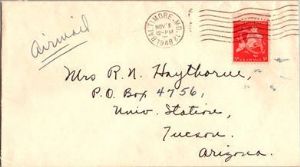 Airmail
BALTIMORE, MD.
NOV
12-PM
1948
Mrs R. N. Haythorne,
P.O. Box 4756,
Univ. Station,
Tucson,
Arizona.